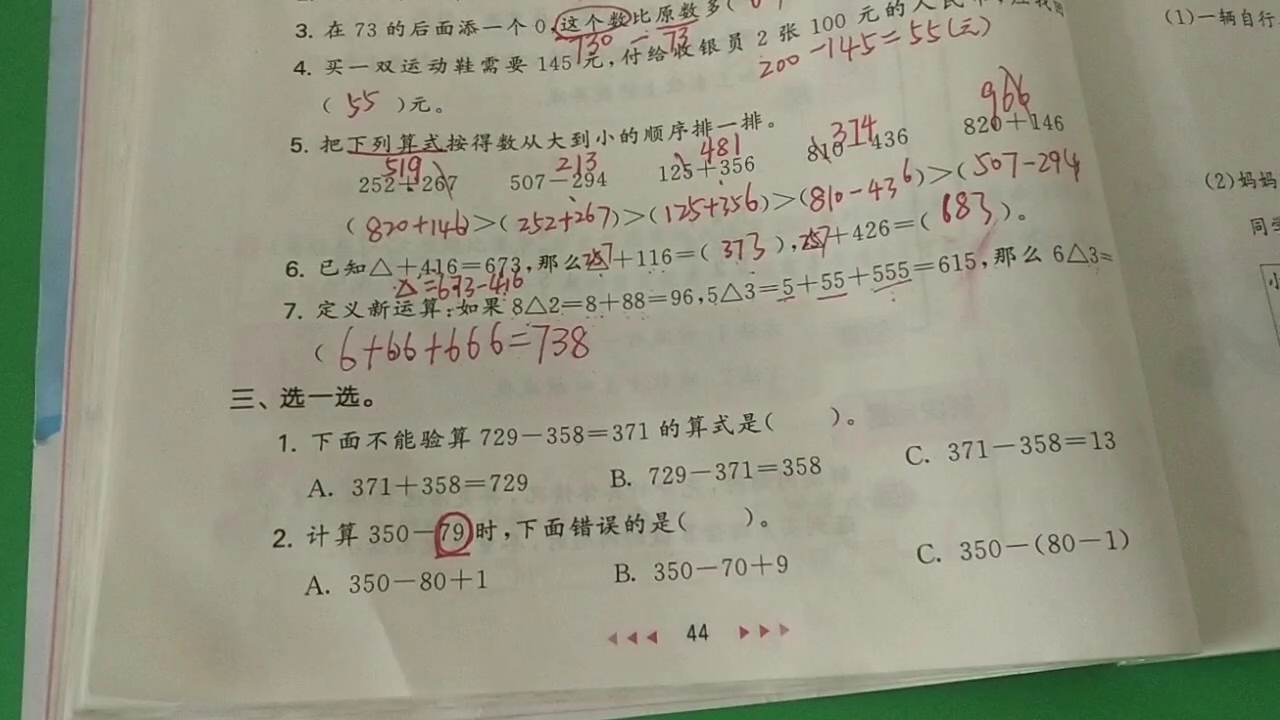 3. 在 73 的后面添一个 0,这个数比原数多(
730 - 73
4. 买一双运动鞋需要 145 元,付给收银员 2 张 100 元的人民币,应找回
200-145=55(元)
( 55 )元。
5. 把下列算式按得数从大到小的顺序排一排。
519 213 481 374 966
252+267 507-294 125+356 810-436 820+146
(820+146)>(252+267)>(125+356)>(810-436)>(507-294
6. 已知△+416=673,那么257+116=( 373 ),257+426=( 683 )。
△=673-416
7. 定义新运算:如果 8△2=8+88=96,5△3=5+55+555=615,那么 6△3=
( 6+66+666=738
三、选一选。
1. 下面不能验算 729-358=371 的算式是( )。
A. 371+358=729 B. 729-371=358 C. 371-358=13
2. 计算 350-79时,下面错误的是( )。
A. 350-80+1 B. 350-70+9 C. 350-(80-1)
44
(1)一辆自行
(2)妈妈
同学